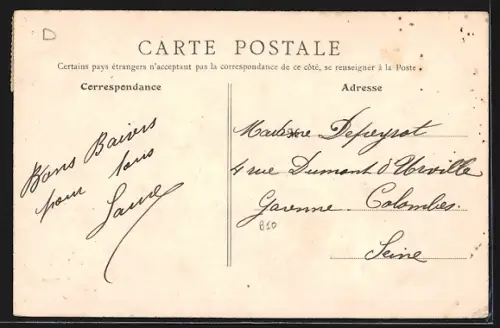 D
CARTE POSTALE
Certains pays étrangers n'acceptant pas la correspondance de ce côté, se renseigner à la Poste.
Correspondance
Bons Baisers
pour tous
Laure
Adresse
Madame Depeyrot
4 rue Dumont d'Urville
Garenne-Colombes.
Seine